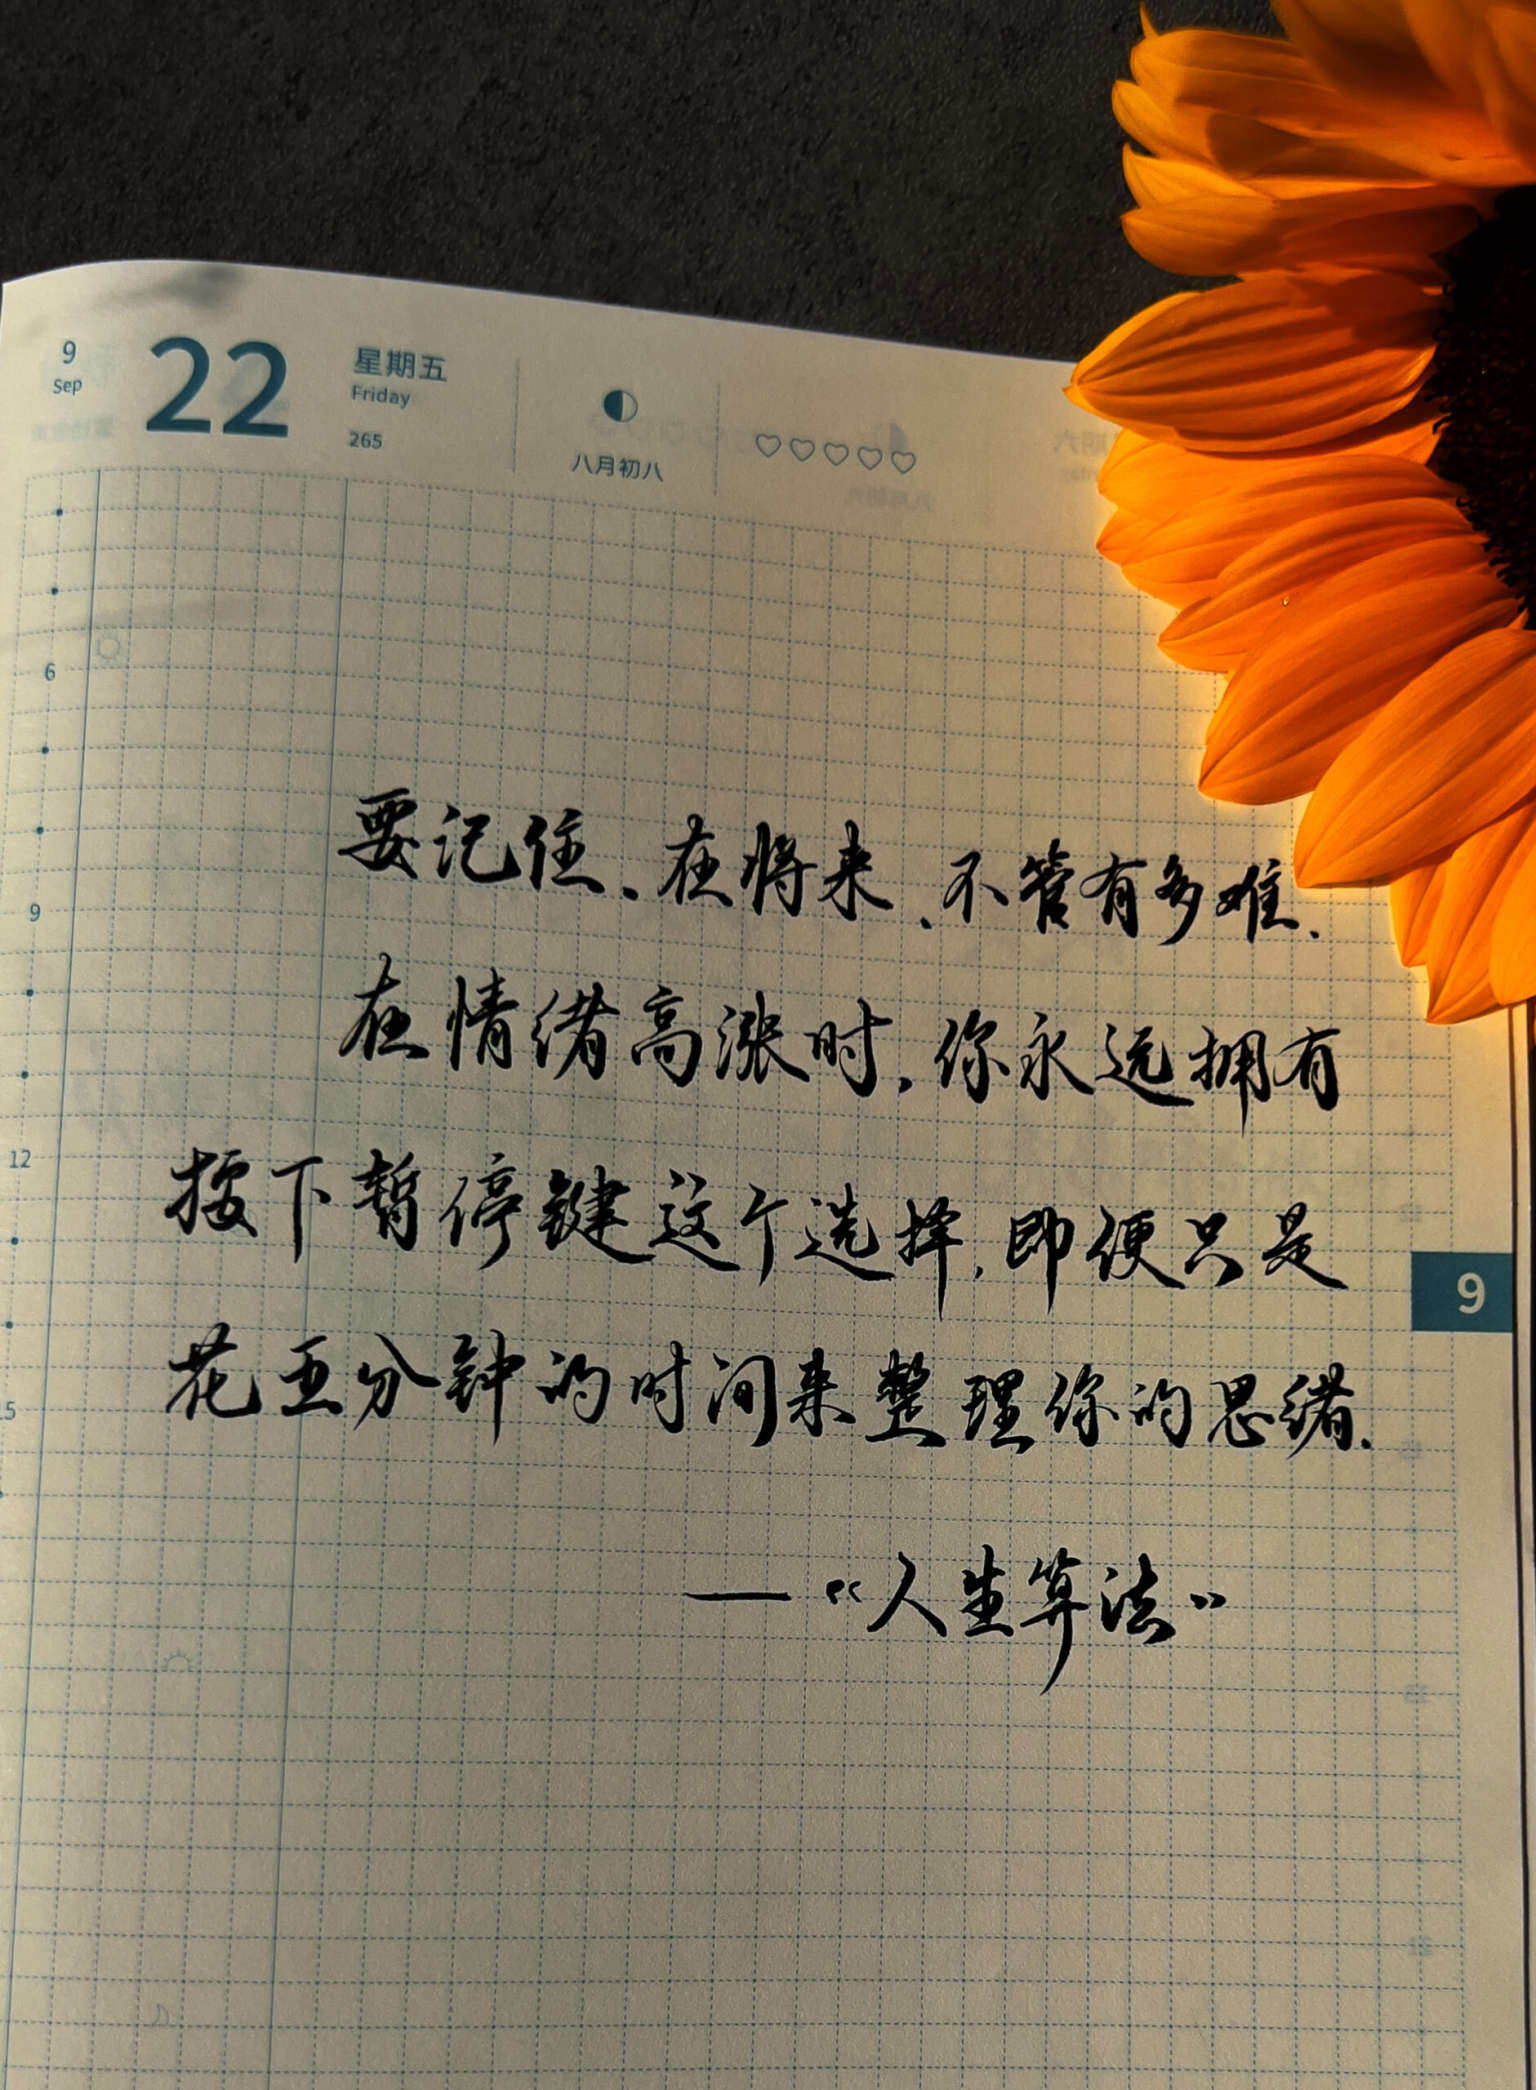 9
Sep
22
星期五
Friday
265
八月初八
6
9
12
要记住、在将来、不管有多难、
在情绪高涨时，你永远拥有
按下暂停键这个选择，即便只是
花五分钟的时间来整理你的思绪.
9
5
—《人生算法》